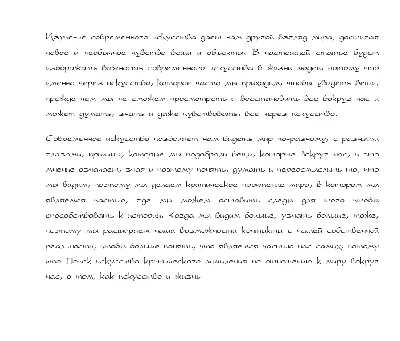 Изучение современного искусства дает нам другой взгляд мира, достигая
новое и необычное чувство вещи и объекты. В настоящей статье будем
изображать важность современного искусства в жизни людей, потому что
именно через искусство, которое часто мы приходим, чтобы увидеть вещи,
прежде чем мы не сможем просмотреть и восстановить все вокруг нас и
может думать, знать и даже чувствовать все через искусство.
Современное искусство позволяет нам видеть мир по-разному, с разными
глазами, причины, которые мы подобрали вещи, которые вокруг нас, и это
мнение означает, зная и поэтому понять, думать и переосмыслить то, что
мы видим, поэтому мы делаем критическое понимание мира, в котором мы
являемся частью, где мы можем оставить следы для того чтобы
способствовать к истории. Когда мы видим больше, узнать больше, тоже,
поэтому мы расширяем наши возможности контакта с нашей собственной
реальность, чтобы больше понять, что является частью нас самих, потому
что Поиск искусство критического мышления по отношению к миру вокруг
нас, о том, как искусство и жизнь